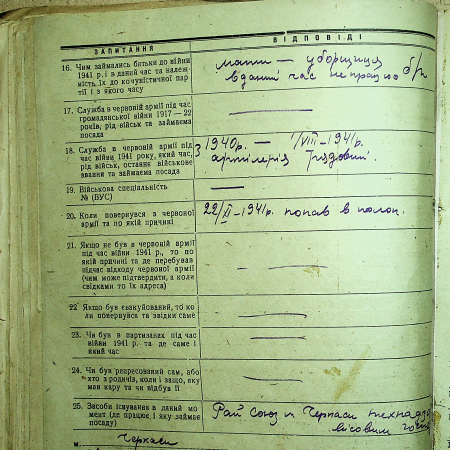 ЗАПИТАННЯ
ВІДПОВІДІ
16. Чим займались батьки до війни
1941 р. і в даний час та належ-
ність їх до комуністичної пар-
тії і з якого часу
мати — уборщиця
в даний час не працює б/п
17. Служба в червоній армії під час
громадянської війни 1917 — 22
років, рід військ та займаєма
посада
18. Служба в червоній армії під
час війни 1941 року, який час,
рід військ, останнє військове
звання та займаєма посада
З 1940р. — 1/VIII – 1941р.
артилерія Рядовий.
19. Військова спеціальність
№ (ВУС)
20. Коли повернувся з червоної
армії та по якій причині
1941р. попав в полон.
21. Якщо не був в червоній армії
під час війни 1941 р., то по
якій причині та де перебував
підчас відходу червоної армії
(чим може підтвердити, а коли
свідками то їх адреса)
22 Якщо був евакуйований, то ко-
ли повернувся та звідки саме
23. Чи був в партизанах під час
війни 1941 р. та де саме і
який час
24. Чи був репресований сам, або
хто з родичів, коли і защо, яку
мав кару та чи відбув її
25. Засоби існування в даний мо-
мент (де працює і яку займає
посаду)
Рай Союз м Черкаси
м. Черкаси